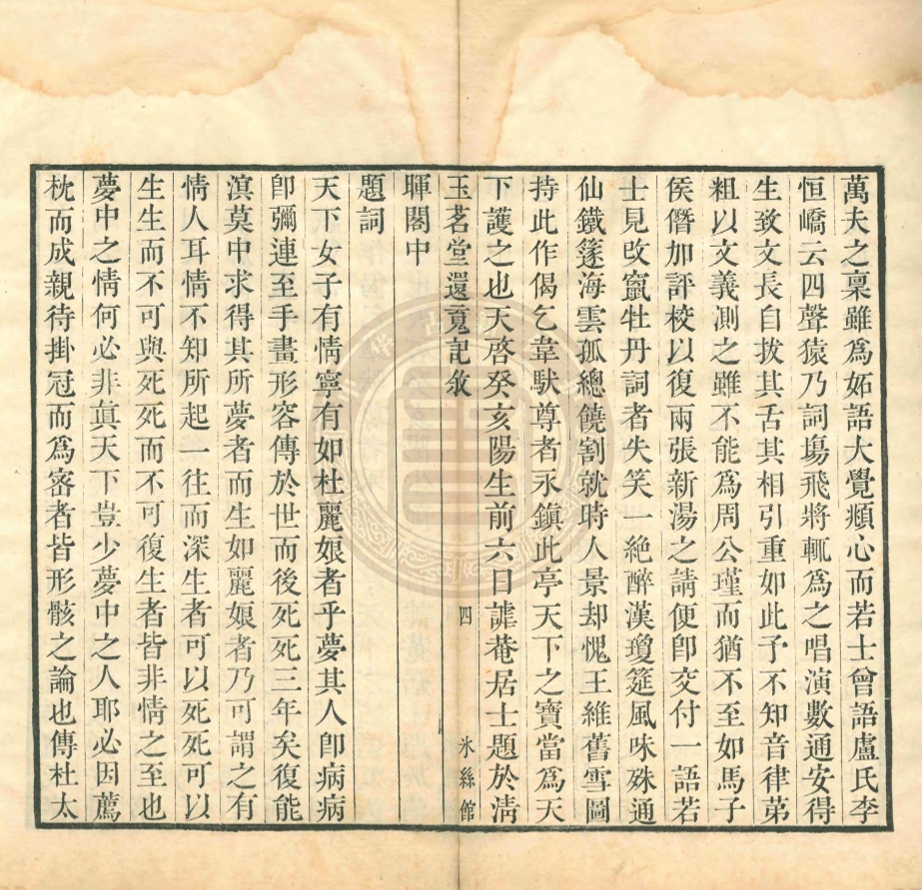 萬夫之稟雖爲妬語大覺頫心而若士曾語盧氏李
恒嶠云四聲猿乃詞塲飛將輒爲之唱演數通安得
生致文長自拔其舌其相引重如此予不知音律第
粗以文義測之雖不能爲周公瑾而猶不至如馬子
侯僭加評校以復兩張新湯之請便卽交付一語若
士見改竄牡丹詞者失笑一絶醉漢瓊筵風味殊通
仙鐵篴海雲孤總饒割就時人景却愧王維舊雪圖
持此作偈乞韋馱尊者永鎮此亭天下之寶當爲天
下護之也天啓癸亥陽生前六日謔菴居士題於淸
暉閣中
玉茗堂還䰟記敘
四
氷絲館
題詞
天下女子有情寧有如杜麗娘者乎夢其人卽病病
卽彌連至手畫形容傳於世而後死死三年矣復能
溟莫中求得其所夢者而生如麗娘者乃可謂之有
情人耳情不知所起一往而深生者可以死死可以
生生而不可與死死而不可復生者皆非情之至也
夢中之情何必非眞天下豈少夢中之人耶必因薦
枕而成親待掛冠而爲密者皆形骸之論也傳杜太